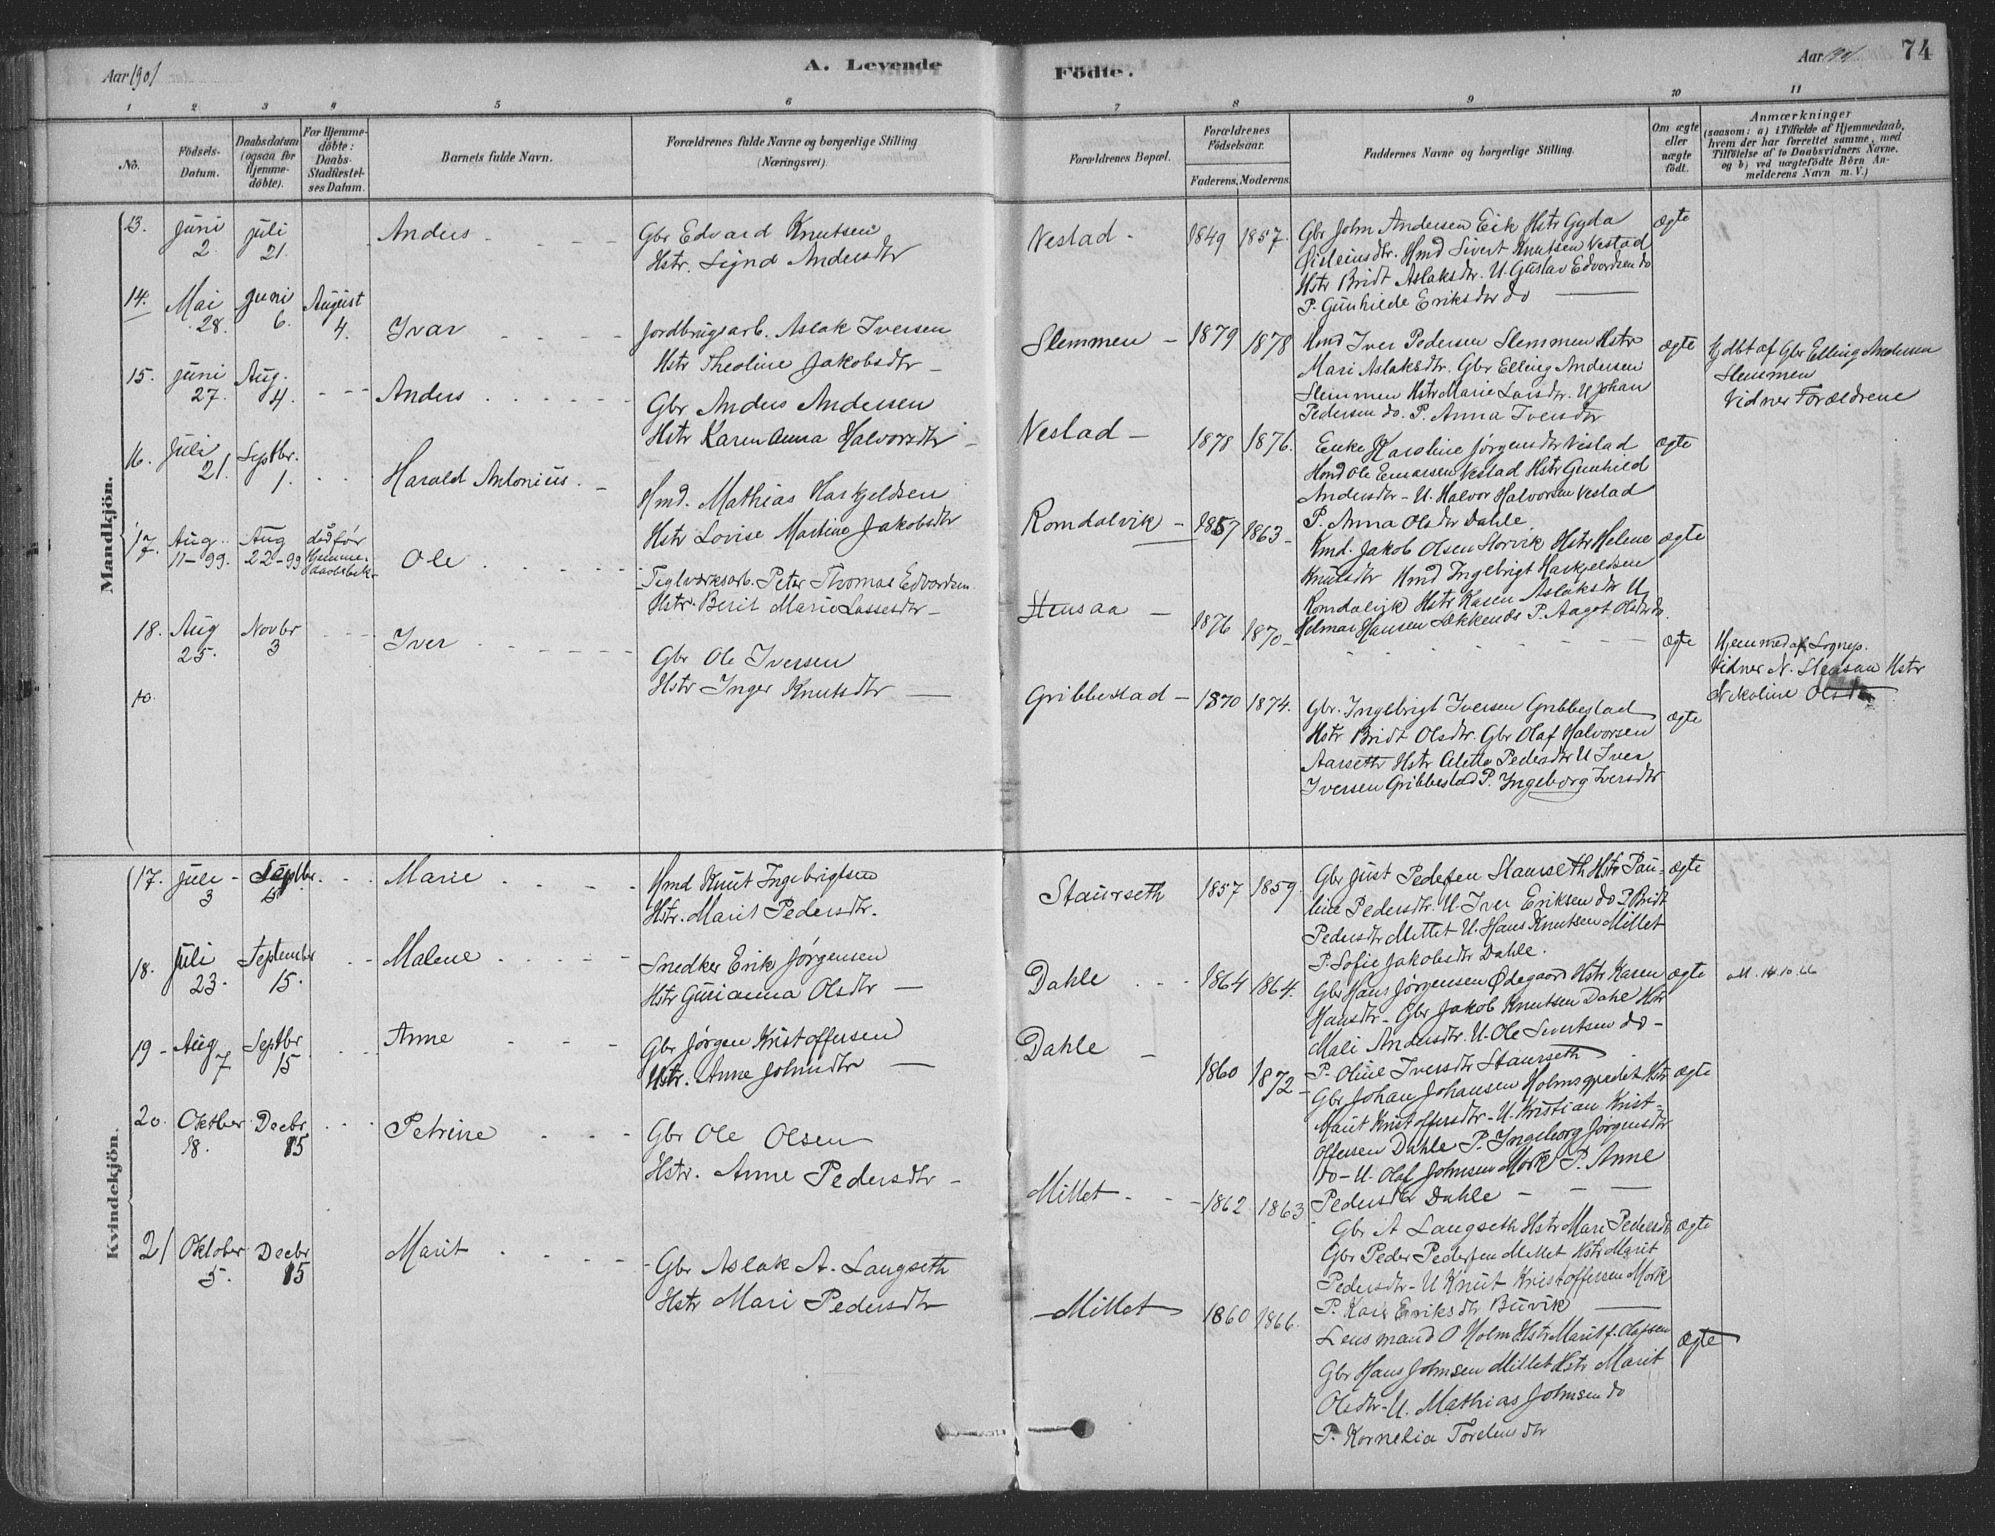 Aar 1901
A. Levende
Födte.
Aar 1901
74
1
2
3
4
5
6
7
8
9
10
11
No.
Födsels-
Datum.
Daabsdatum
(ogsaa for
Hjemme-
döbte).
For Hjemme-
döbte:
Daabs-
Stadfæstel-
ses Datum.
Barnets fulde Navn.
Forældrenes fulde Navne og borgerlige Stilling
(Næringsvei).
Forældrenes Bopæl.
Forældrenes
Födselsaar.
Faderens. Moderens.
Faddernes Navne og borgerlige Stilling.
Om ægte
eller
uægte
födt.
Anmærkninger
(saasom: a) i Tilfælde af Hjemmedaab,
hvem der har forrettet samme, med
Tilföielse af to Daabsvidners Navne,
og b) ved uægtefödte Börn An-
melderens Navn m. V.)
Mandkjön.
13. Juni 2. Juli 21. Anders
Gbr Edvard Knutsen
Hstr. Signd Andersdtr
Vestad 1849 1857
Gbr John Andersen Eik Hstr Gyda
Hmd Sivert Knutsen Vestad
Hstr Bridt Aslaksdtr. U. Gustav Edvardsen do
P. Gunhilde Eriksdtr do
ægte
14. Mai 28. Juni 6. August 4. Ivar
Jordbrugsarb. Aslak Iversen
Hstr Theoline Jakobsdtr
Slemmen 1879 1878
Hmd Iver Pedersen Slemmen Hstr
Mari Aslaksdtr. Gbr Elling Andersen
Slemmen Hstr Marie Larsdtr. U Johan
Pedersen do. P. Anna Iversdtr
ægte
Hjdbt af Gbr Elling Andersen
Slemmen
Vidner Forældrene
15. Juni 27. Aug. 4. Anders
Gbr Anders Andersen
Hstr Karen Anna Halvorsdtr
Vestad 1878 1876.
Enke Karoline Jørgensdtr Vestad
Hmd Ole Einarsen Vestad Hstr Gunhild
Andersdtr - U. Halvor Halvorsen Vestad
P. Anna Olsdtr Dahle.
ægte
16. Juli 21. Septbr. 1. Harald Antonius.
Hmd. Mathias Haskjeldsen
Hstr Lovise Martine Jakobsdtr
Romdalvik 1857 1863
Kmd. Jakob Olsen Storvik Hstr Helene
Knutsdtr Hmd Ingebrigt Haskjeldsen
Romdalvik Hstr Karen Aslaksdtr U
Helmar Hansen Sækkenes P. Aagot Olsdtr do.
ægte
17. Aug. 11-99. Aug 22-99 død før
Hjemme-
daabsbek- Ole
Teglværksarb. Peter Thomas Edvardsen
Hstr. Berit Marie Lassesdtr
Stensaa 1876 1870
ægte
Hjemmed af Sognep.
Vidner N. Stensaa Hstr
Nikoline Olsdtr
18. Aug 25. Novbr 3 Iver
Gbr Ole Iversen
Hstr Inger Knutsdtr
Gribbestad 1870 1874.
Gbr. Ingebrigt Iversen Gribbestad
Hstr Bridt Olsdtr. Gbr Olaf Halvorsen
Aarseth Hstr Alette Pedersdtr U Iver
Iversen Gribbestad P. Ingeborg Iversdtr
ægte
Kvindekjön.
17. Juli 3 Septbr. Marie
Hmd Knut Ingebrigtsen
Hstr. Marit Pedersdtr.
Staurseth 1857 1859
Gbr Just Pedersen Staurseth Hstr Pau-
line Pedersdtr. U. Iver Eriksen do P Bridt
Pedersdtr Mittet U. Hans Knutsen Millet
P. Sofie Jakobsdtr Dahle.
ægte
18. Juli 23. September 15. Malene
Snedker Erik Jørgensen
Hstr Gurianna Olsdtr
Dahle 1864 1864.
Gbr Hans Jørgensen Ødegaard Hstr Karen
Hansdtr - Gbr Jakob Knutsen Dahl Hstr
Mali Andersdtr. U. Ole Sivertsen do -
P. Oline Iversdtr Staurseth
ægte
14.10.66
19 - Aug 7 Septbr 15 Anne
Gbr Jørgen Kristoffersen
Hstr. Anne Johnsdtr
Dahle 1860 1872
Gbr Johan Johansen Hstr
Marit Kristoffersdtr - U. Kristian Krist-
offersen Dahle P. Ingeborg Jørgensdtr
do - U. Olaf Johnsen Mork P. Anne
Pedersdtr Dahle
ægte
20. Oktber 18. Decbr 15 Petrine
Gbr Ole Olsen
Hstr. Anne Pedersdtr
Millet 1862 1863
Gbr A Langseth Hstr Mari Pedersdtr
Gbr Peder Pedersen Millet Hstr Marit
Pedersdtr - U Knut Kristoffersen Mork
P. Kari Eriksdtr Buvik
ægte
21 Oktober 5. Decbr 15 Marit
Gbr Aslak A. Langseth
Hstr Mari Pedersdtr
Millet 1860 1866.
Lensmand O Holm Hstr Marit f. Olafsen
Gbr Hans Johnsen Millet Hstr Marit
Olsdtr - U. Mathias Johnsen do
P. Kornelia
ægte